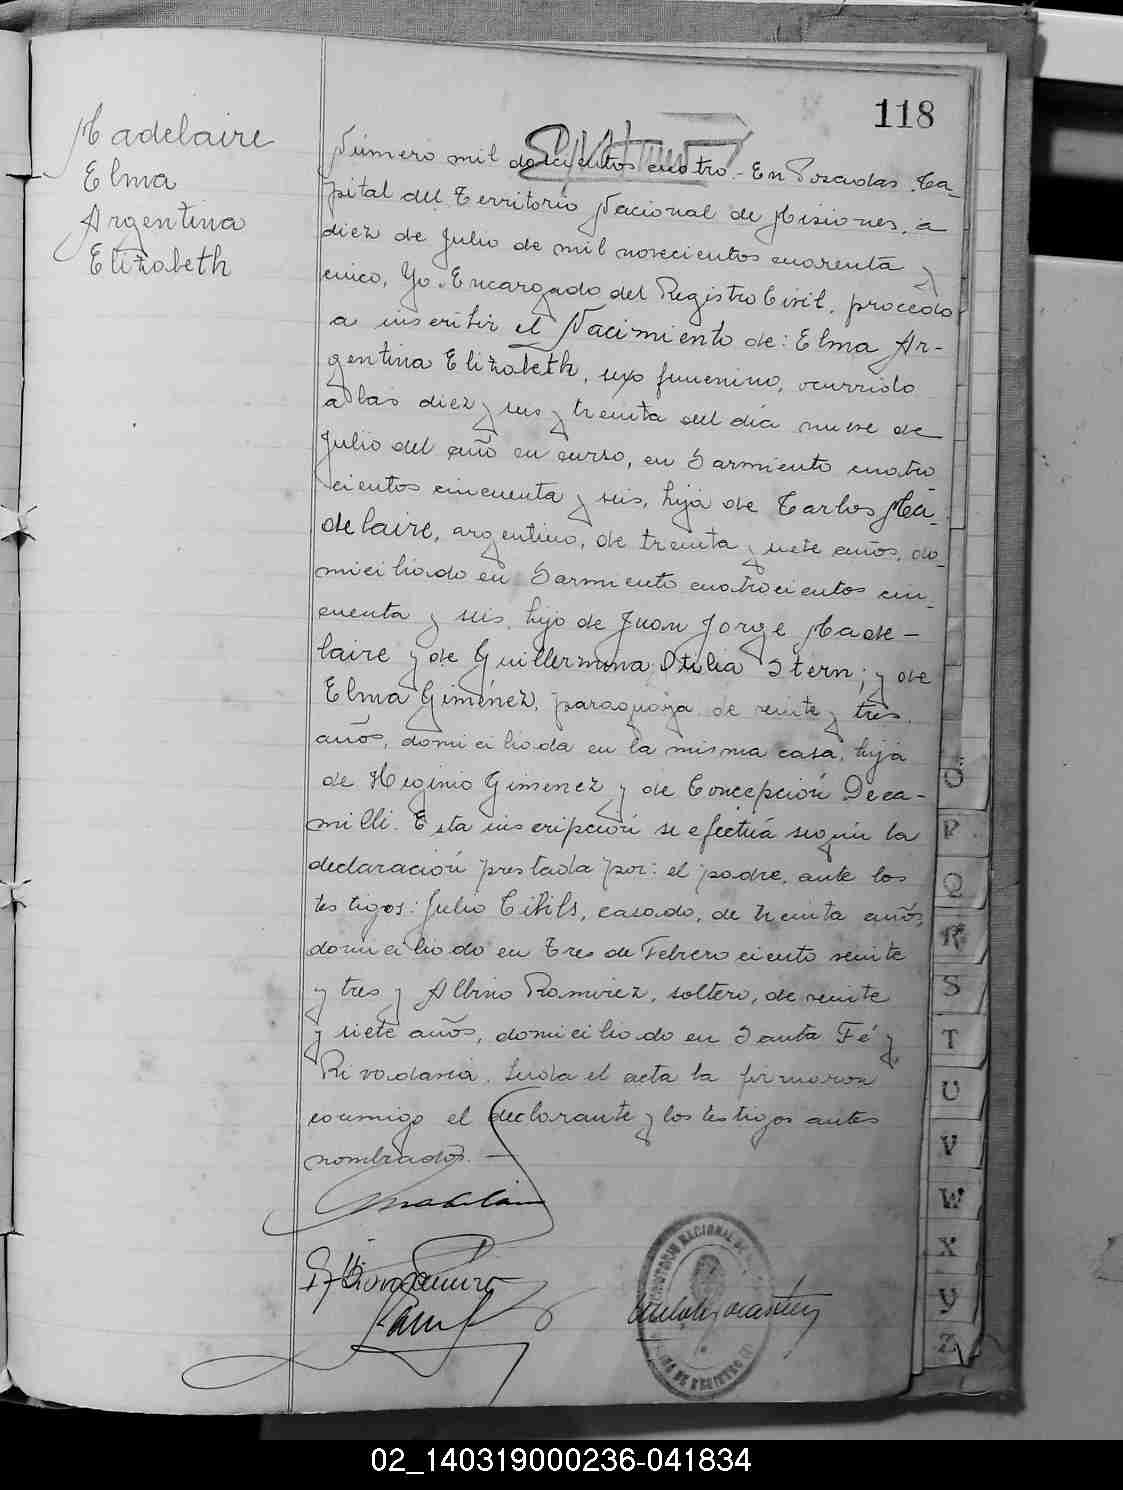 118
Madelaire
Elma
Argentina
Elizabeth
Número mil doscientos cuatro.- En Posadas, Ca-
pital del Territorio Nacional de Misiones, a
diez de Julio de mil novecientos cuarenta y
cinco, Yo Encargado del Registro Civil, procedo
a inscribir el Nacimiento de: Elma Ar-
gentina Elizabeth, sexo femenino, ocurrido
a las diez y seis y treinta del día nueve de
Julio del año en curso, en Sarmiento cuatro
cientos cincuenta y seis, hija de Carlos Ma-
delaire, argentino, de treinta y siete años, do-
miciliado en Sarmiento cuatrocientos cin-
cuenta y seis, hijo de Juan Jorge Made-
laire y de Guillermina Otilia Stern; y de
Elma Giménez, paraguaya, de veinte y tres
años, domiciliada en la misma casa, hija
de Higinio Gimenez y de Concepción Deca-
milli. Esta inscripción se efectuá según la
declaración prestada por: el padre, ante los
testigos: Julio Cibils, casado, de treinta años,
domiciliado en Tres de Febrero ciento veinte
y tres y Albino Ramirez, soltero, de veinte
y siete años, domiciliado en Santa Fé y
Rivadavia. Leida el acta la firmaron
conmigo el declarante y los testigos antes
nombrados.-
TERRITORIO NACIONAL DE
O
P
Q
R
S
T
U
V
W
X
Y
Z
02_140319000236-041834